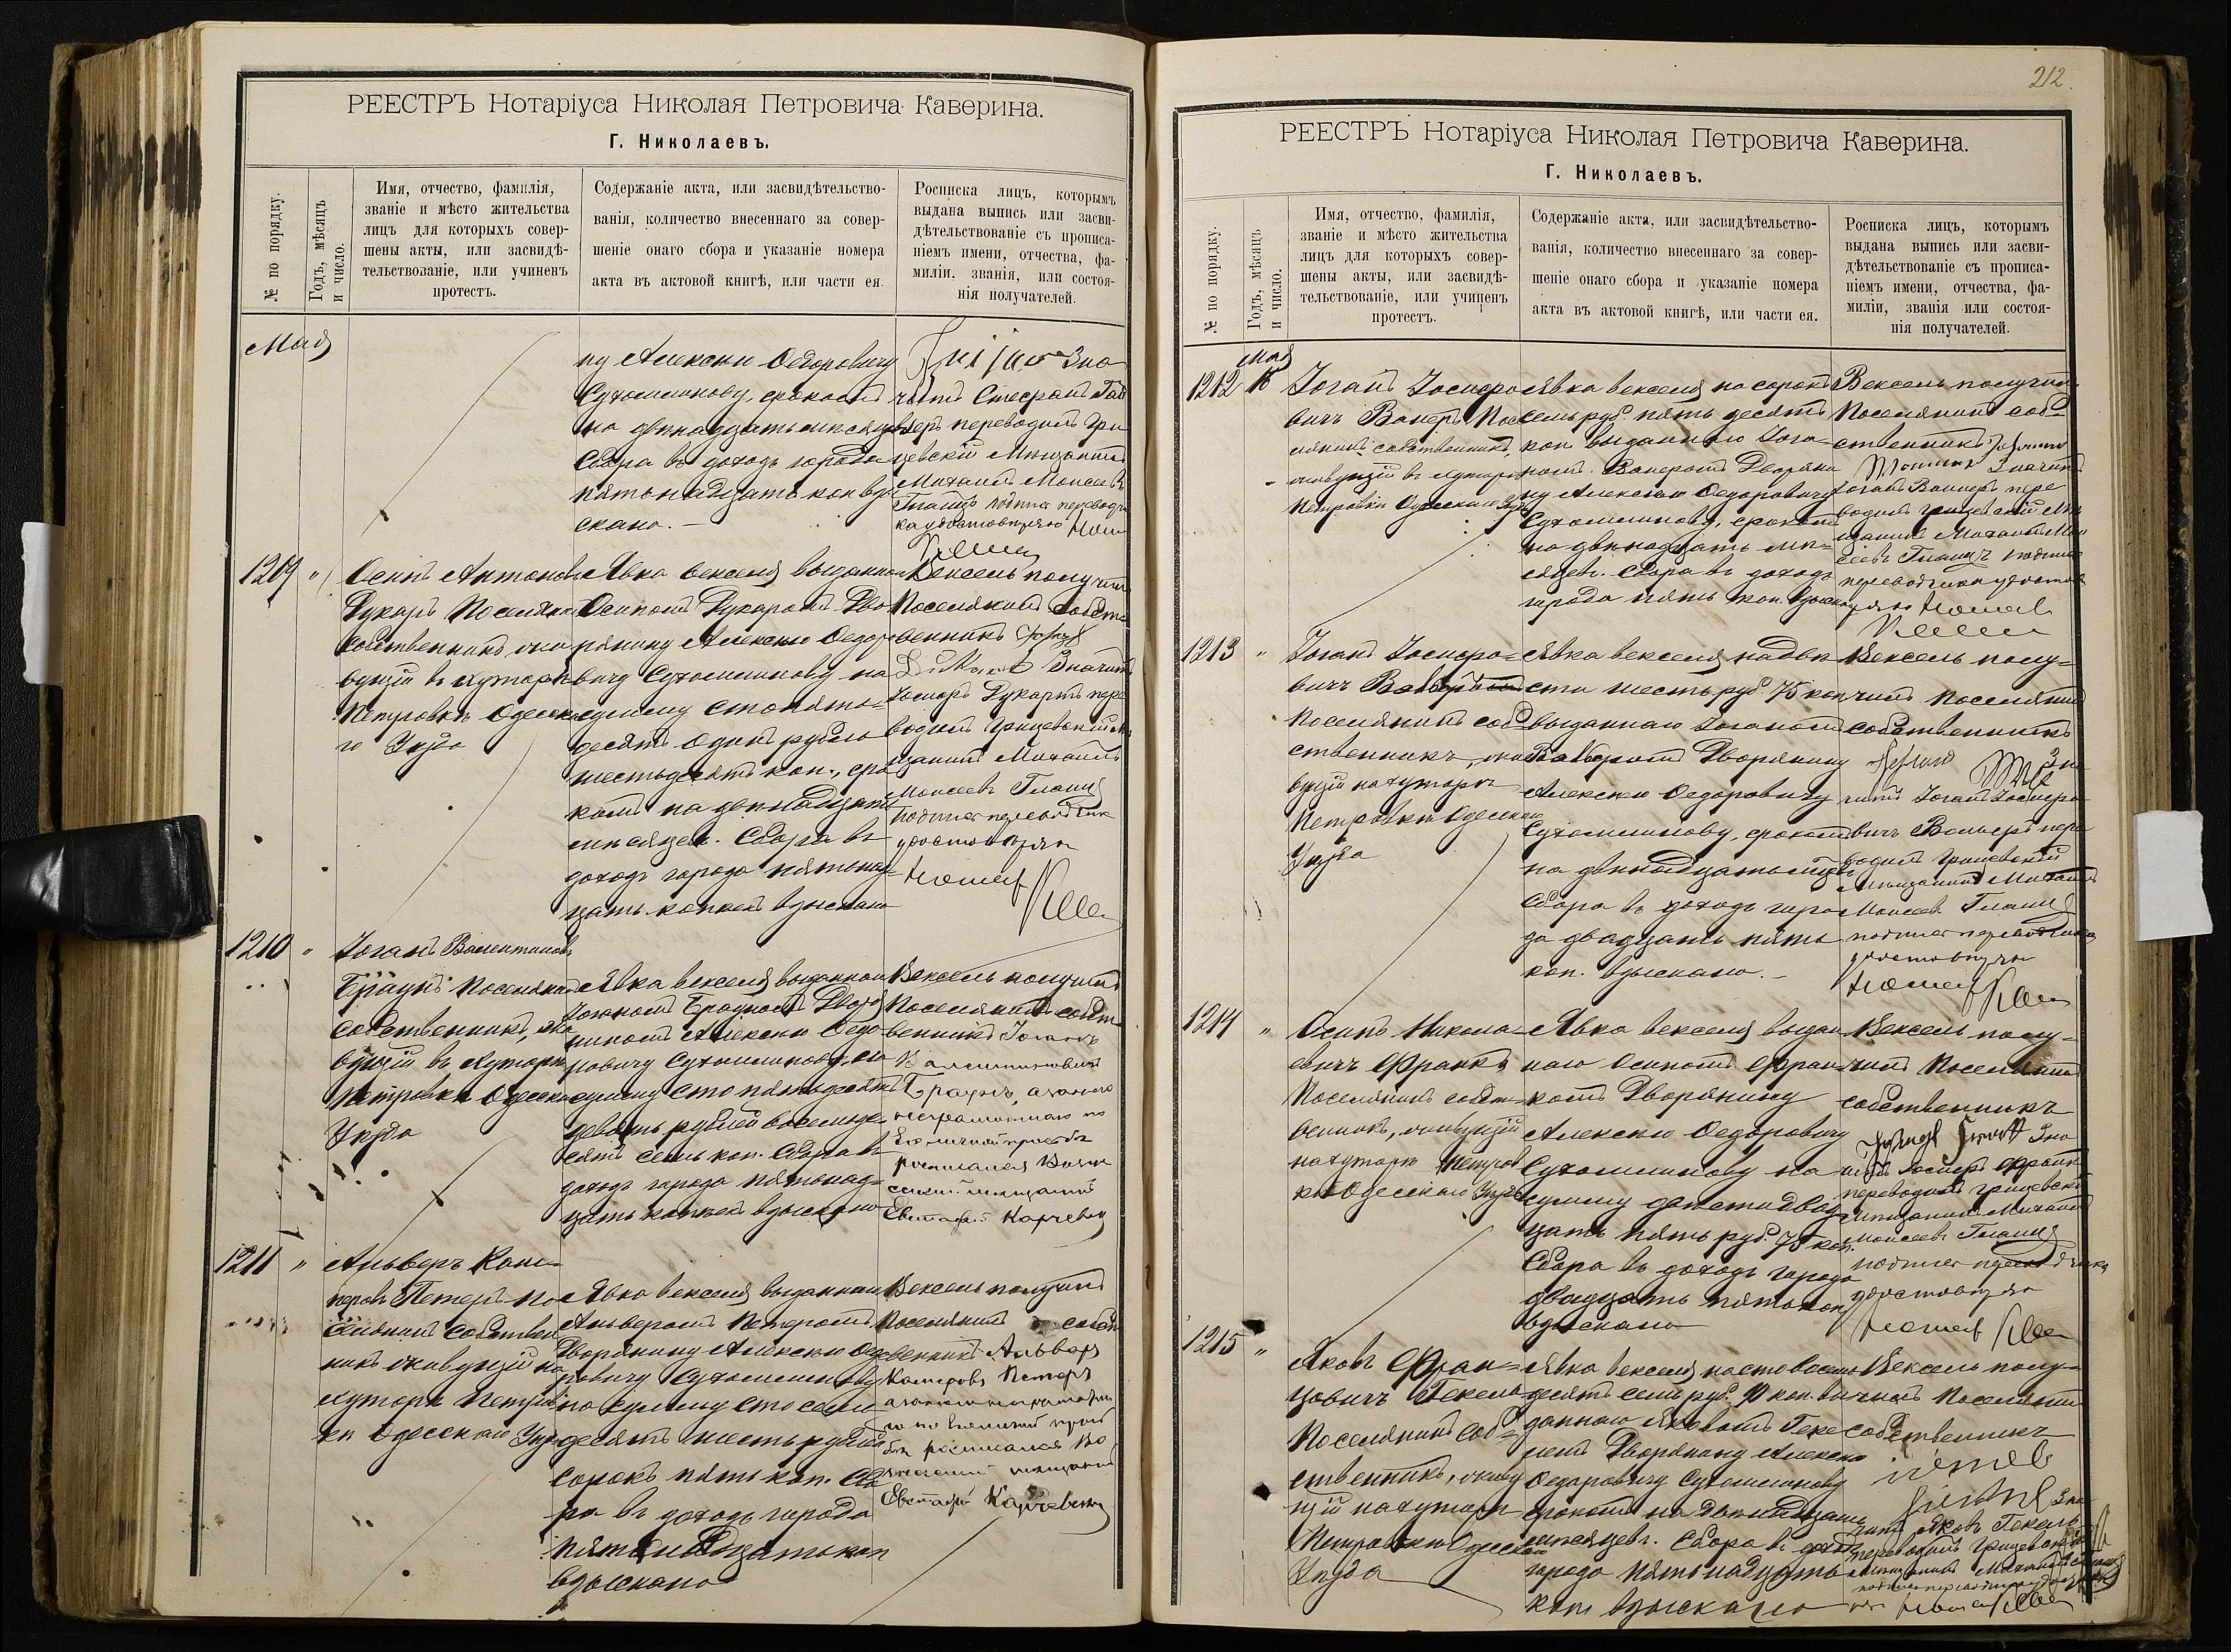 РЕЕСТРЪ Нотаріуса Николая Петровича Каверина.
Г. Николаевъ.
№ по порядку.
Годъ, мѣсяцъ
и число.
Имя, отчество, фамилія,
званіе и мѣсто жительства
лицъ для которыхъ совер-
шены акты, или засвидѣ-
тельствованіе, или учиненъ
протестъ.
Содержаніе акта, или засвидѣтельство-
ванія, количество внесеннаго за совер-
шеніе онаго сбора и указаніе номера
акта въ актовой книгѣ, или части ея.
Росписка лицъ, которымъ
выдана выпись или засви-
дѣтельствованіе съ прописа-
ніемъ имени, отчества, фа-
миліи, званія, или состоя-
нія получателей.
Мая
ну Алексѣю Ѳедоровичу
Сухомлинову, срокомъ
на двѣнадцать мѣсяцевъ
Сбора въ доходъ города
пятьнадцать коп взы
скано. —
переводилъ Гри
цевскій Мѣщанинъ
Михаилъ Моисеевъ
Гланцъ подпись переводчи
ка удостовѣряю
1209 "
Осипъ Антоновъ
Дукартъ Поселянинъ
Собственникъ, жи
вущій въ хуторѣ
Петровкѣ Одесска
го Уѣзда
Явка векселя выданнаго
Осипомъ Дукартомъ Дво
рянину Алексѣю Ѳедоро
вичу Сухомлинову на
сумму сто пять=
десятъ одинъ рубль
шестьдесятъ коп., сро
комъ на двѣнадцать
мѣсяцевъ. Сбора въ
доходъ города пятьнад=
цать копѣекъ взыскано
Вексель получилъ
Поселянинъ собст
венникъ
Значитъ
Іосифъ Дукартъ пере
водилъ Грицевскій Мѣ
щанинъ Михаилъ
Моисеевъ Гланцъ
подпись переводчика
удостовѣряю
1210 "
Іоганъ Валентиновъ
Браунъ Поселянинъ
Собственникъ, жи
вущій въ хуторѣ
Петровкѣ Одесскаго
Уѣзда
Явка векселя выданнаго
Іоганомъ Брауномъ Дворя
ниномъ Алексѣю Ѳедо
ровичу Сухомлинову, на
сумму сто пятьдесятъ
девять рублей восемьде
сятъ семь коп. Сбора въ
доходъ города пятьнад=
цать копѣекъ взыскано
Вексель получилъ
Поселянинъ собст
венникъ Іоганъ
Валентиновичъ
Браунъ, а за него
неграмотнаго по
его личной просьбѣ
росписался Возне
сенскій мѣщанинъ
Евстафій Карчевскій
1211 "
Альберъ Кас=
перовъ Петеръ По
селянинъ Собствен
никъ живущій на
хуторѣ Петров
кѣ Одесскаго Уѣзда
Явка векселя выданнаго
Альберомъ Петеромъ
Дворянину Алексѣю Ѳедо
ровичу Сухомлинову
на сумму сто семь
десятъ шесть рублей
сорокъ пять коп. Сбо
ра въ доходъ города
пятьнадцать коп
взыскано
Вексель получилъ
Поселянинъ собст
венникъ Альберъ
Касперовъ Петеръ
а за него неграмотна
го по его личной прось
бѣ росписался Во
знесенскій мѣщанинъ
Евстафій Карчевскій
212.
РЕЕСТРЪ Нотаріуса Николая Петровича Каверина.
Г. Николаевъ.
№ по порядку.
Годъ, мѣсяцъ
и число.
Имя, отчество, фамилія,
званіе и мѣсто жительства
лицъ для которыхъ совер-
шены акты, или засвидѣ-
тельствованіе, или учиненъ
протестъ.
Содержаніе акта, или засвидѣтельство-
ванія, количество внесеннаго за совер-
шеніе онаго сбора и указаніе номера
акта въ актовой книгѣ, или части ея.
Росписка лицъ, которымъ
выдана выпись или засви-
дѣтельствованіе съ прописа-
ніемъ имени, отчества, фа-
миліи, званія или состоя-
нія получателей.
Мая
1212
Іоганъ Іосифо
вичъ Ванеръ Посе
лянинъ собственникъ,
живущій въ хуторѣ
Петровкѣ Одесскаго Уѣзда
Явка векселя на сорокъ
семь руб. пять десятъ
коп. выданнаго Іога=
номъ Ванеромъ Дворяни
ну Алексѣю Ѳедоровичу
Сухомлинову, срокомъ
на двѣнадцать мѣ=
сяцевъ. Сбора въ доходъ
города пять коп. взыскано
Вексель получилъ
Поселянинъ соб=
ственникъ
Значитъ
Іоганъ Ванеръ пере
водилъ Грицевскій Мѣ
щанинъ Михаилъ Мои
сеевъ Гланцъ подпись
переводчика удостовѣ
ряю
1213 "
Іоганъ Іосифо=
вичъ
Поселянинъ соб=
ственникъ, жи
вущій на хуторѣ
Петровкѣ Одесскаго
Уѣзда
Явка векселя на двѣ
сти шесть руб. 75 коп.
выданнаго Іоганомъ
Дворянину
Алексѣю Ѳедоровичу
Сухомлинову, срокомъ
на двѣнадцать мѣсяц
Сбора въ доходъ горо
да двадцать пять
коп. взыскано. —
Вексель полу=
чилъ Поселянинъ
собственникъ
Зна
читъ Іоганъ Іосифо
вичъ пере
водилъ Грицевскій
Мѣщанинъ Михаилъ
Моисеевъ Гланцъ
подпись переводчика
удостовѣряю
1214 "
Осипъ Никола=
евичъ Франкъ
Поселянинъ собст=
венникъ, живущій
на хуторѣ Петров
кѣ Одесскаго Уѣзда
Явка векселя выдан
наго Осипомъ Фран
комъ Дворянину
Алексѣю Ѳедоровичу
Сухомлинову на
сумму двѣсти двад
цать пять руб. 75 коп.
Сбора въ доходъ города
двадцать пять коп
взыскано
Вексель полу=
чилъ Поселянинъ
собственникъ
Зна
читъ Іосифъ Франкъ
переводилъ Грицевскій
Мѣщанинъ Михаилъ
Моисеевъ Гланцъ
подпись переводчика
удостовѣряю
1215 "
Яковъ Фран=
цовичъ Гекель
Поселянинъ Соб=
ственникъ, живу
щій на хуторѣ
Петровкѣ Одесскаго
Уѣзда
Явка векселя на сто восемь
десятъ семь руб. коп. вы
даннаго Яковомъ Геке
лемъ Дворянину Алексѣю
Ѳедоровичу Сухомлинову
срокомъ на двѣнадцать
мѣсяцевъ. Сбора въ доходъ
города пятьнадцать
коп взыскано
Вексель полу=
чилъ Поселянинъ
собственникъ
Зна
читъ Яковъ Гекель
переводилъ Грицевскій
Мѣщанинъ Михаилъ